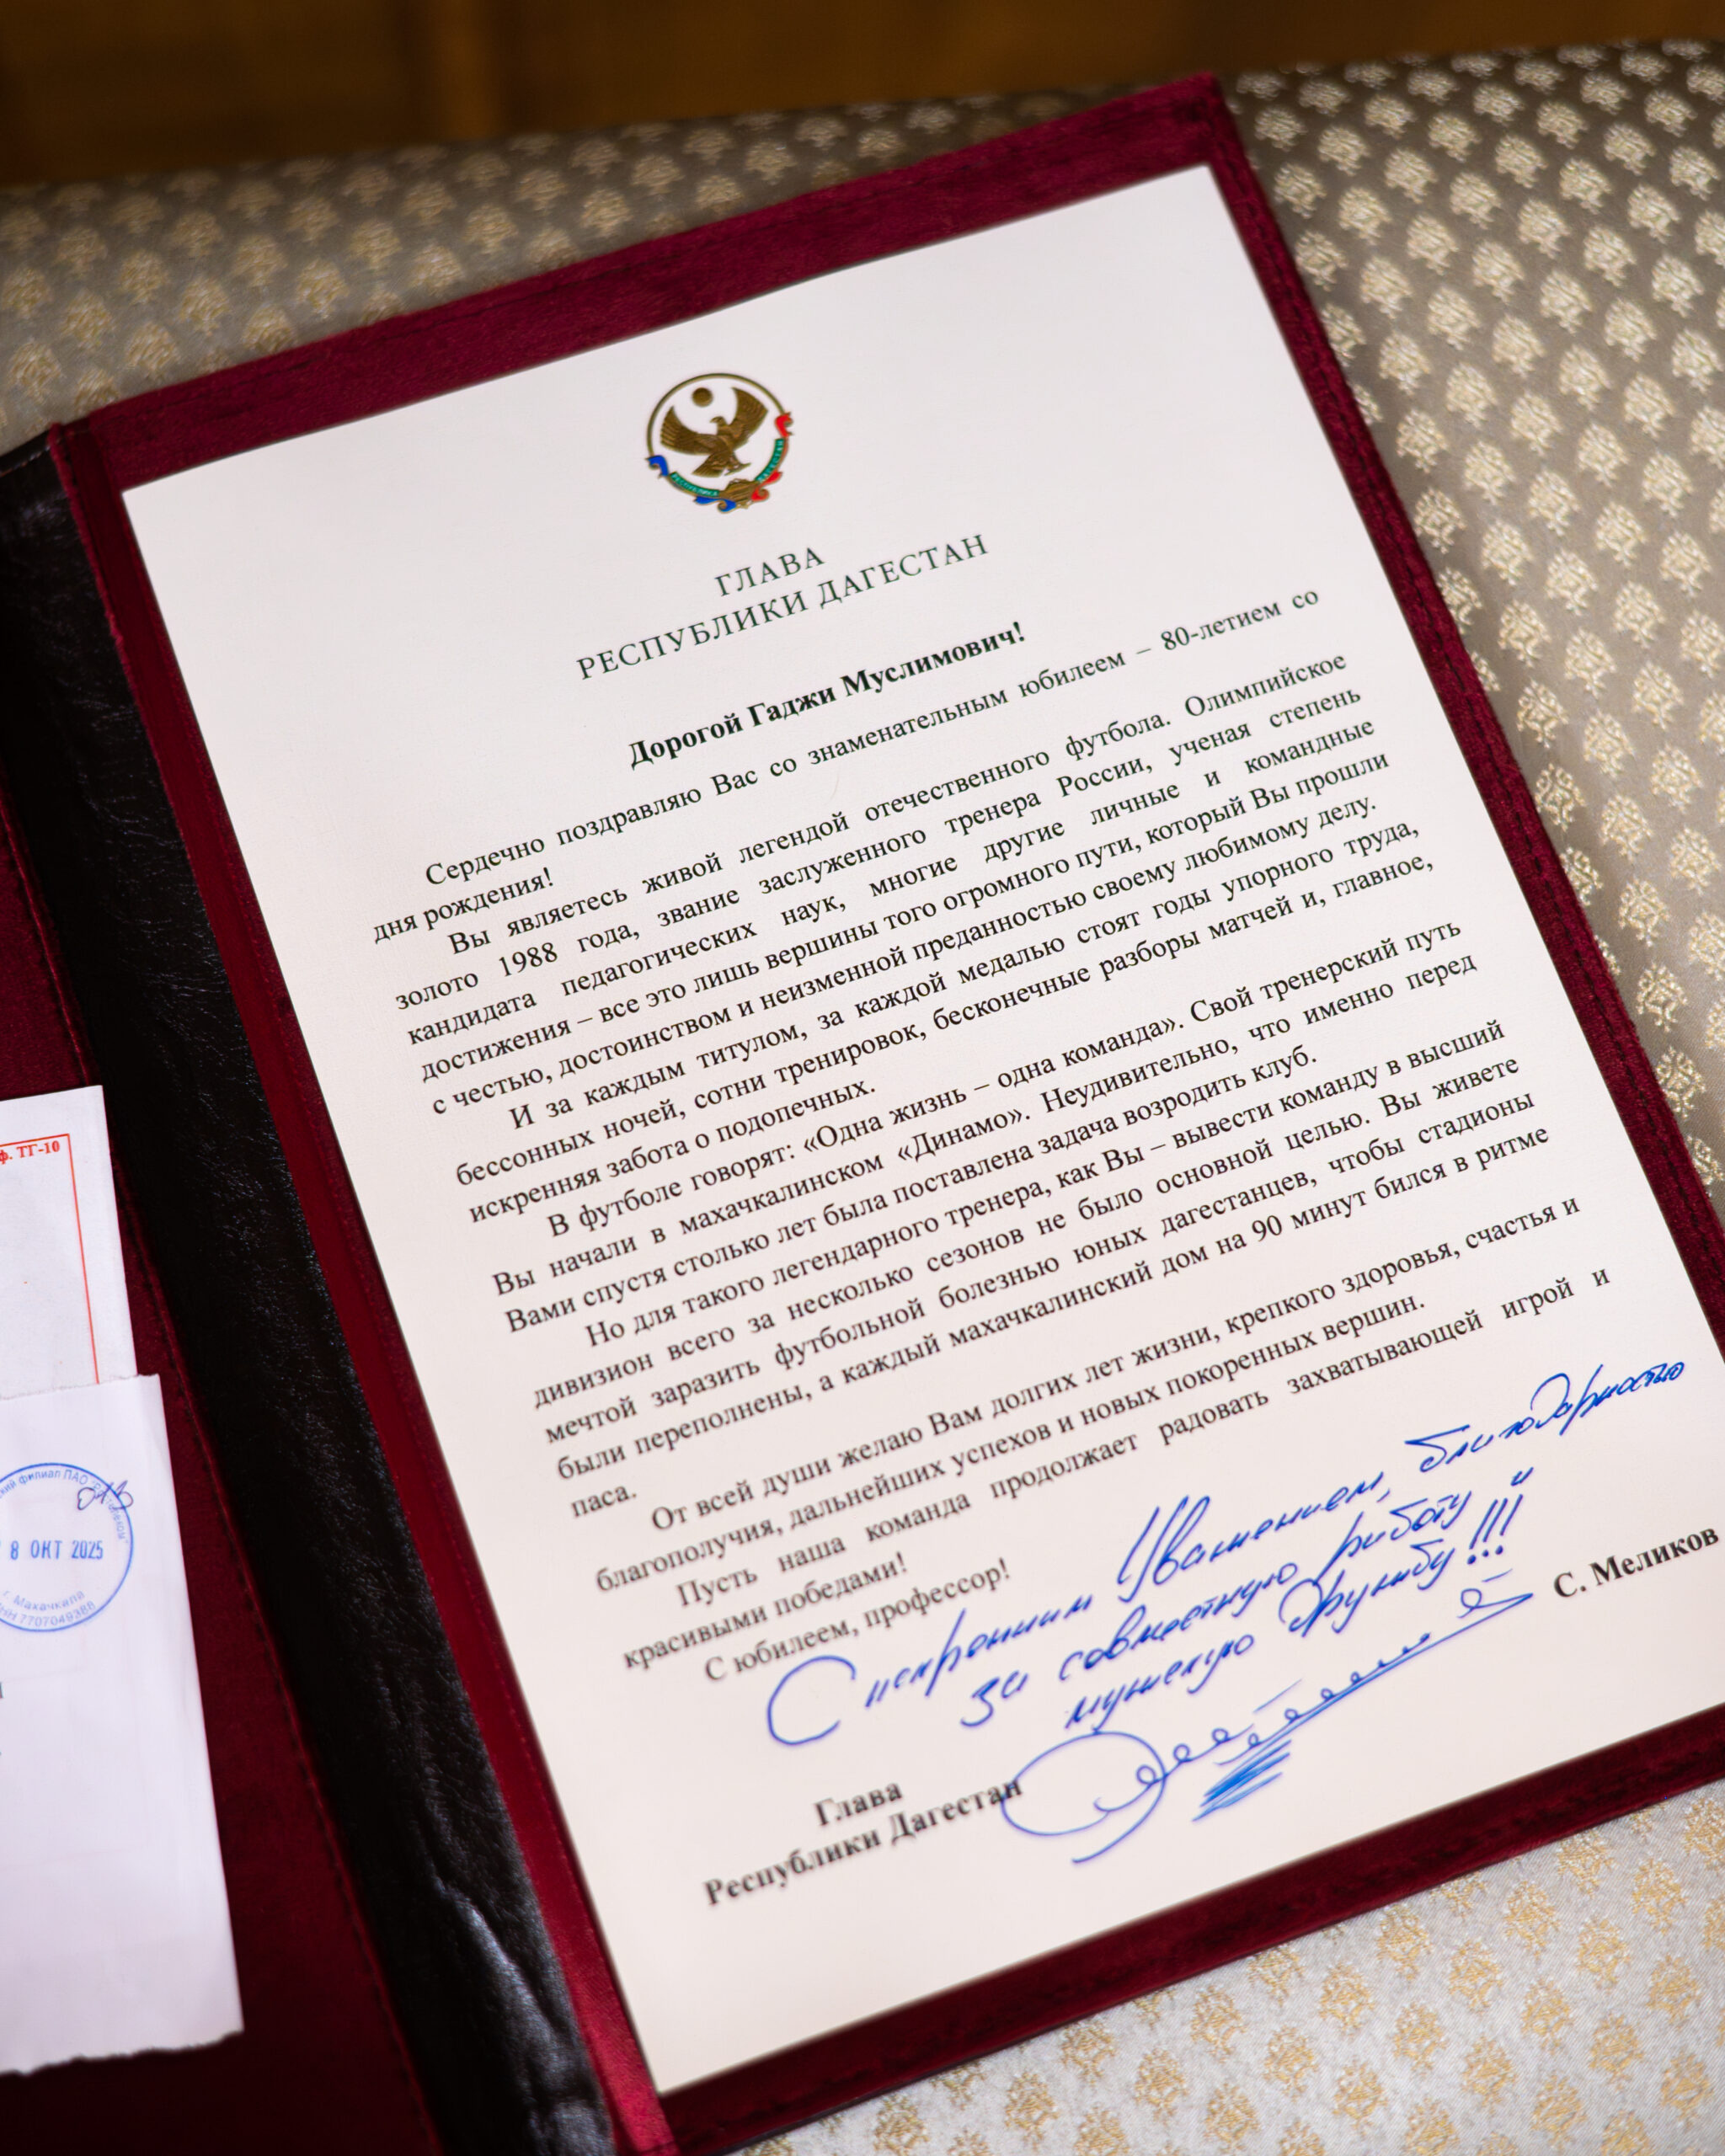 РЕСПУБЛИКА ДАГЕСТАН
ГЛАВА
РЕСПУБЛИКИ ДАГЕСТАН
Дорогой Гаджи Муслимович!
Сердечно поздравляю Вас со знаменательным юбилеем – 80-летием со
дня рождения!
Вы являетесь живой легендой отечественного футбола. Олимпийское
золото 1988 года, звание заслуженного тренера России, ученая степень
кандидата педагогических наук, многие другие личные и командные
достижения – все это лишь вершины того огромного пути, который Вы прошли
с честью, достоинством и неизменной преданностью своему любимому делу.
И за каждым титулом, за каждой медалью стоят годы упорного труда,
бессонных ночей, сотни тренировок, бесконечные разборы матчей и, главное,
искренняя забота о подопечных.
В футболе говорят: «Одна жизнь – одна команда». Свой тренерский путь
Вы начали в махачкалинском «Динамо». Неудивительно, что именно перед
Вами спустя столько лет была поставлена задача возродить клуб.
Но для такого легендарного тренера, как Вы – вывести команду в высший
дивизион всего за несколько сезонов не было основной целью. Вы живете
мечтой заразить футбольной болезнью юных дагестанцев, чтобы стадионы
были переполнены, а каждый махачкалинский дом на 90 минут бился в ритме
паса.
От всей души желаю Вам долгих лет жизни, крепкого здоровья, счастья и
благополучия, дальнейших успехов и новых покоренных вершин.
Пусть наша команда продолжает радовать захватывающей игрой и
красивыми победами!
С юбилеем, профессор!
С искренним Уважением, благодарностью
за совместную работу и
мужскую Дружбу!!!
Глава
Республики Дагестан
С. Меликов
ф. ТГ-10
филиал ПАО
8 ОКТ 2025
г. Махачкала
ИНН 7707049388